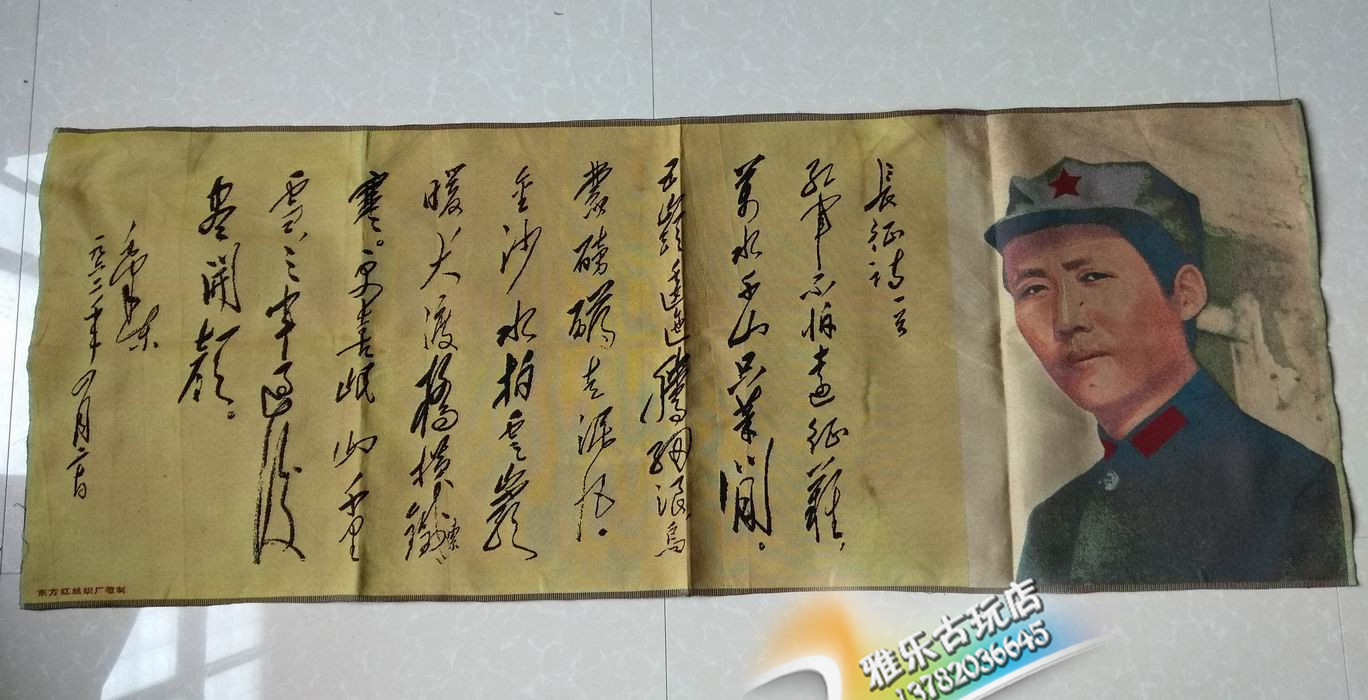 長征詩一首
红軍不怕遠征難，
萬水千山只等閒。
五嶺逶迤騰細浪烏
蒙磅礴走泥丸。
金沙水拍雲崖
暖大渡橋橫鐵索
寒。更喜岷山千里
雪，三軍過後
盡開顏。
毛澤東
一九六二年四月廿日
东方红丝织厂敬制
雅乐古玩店
13782036645